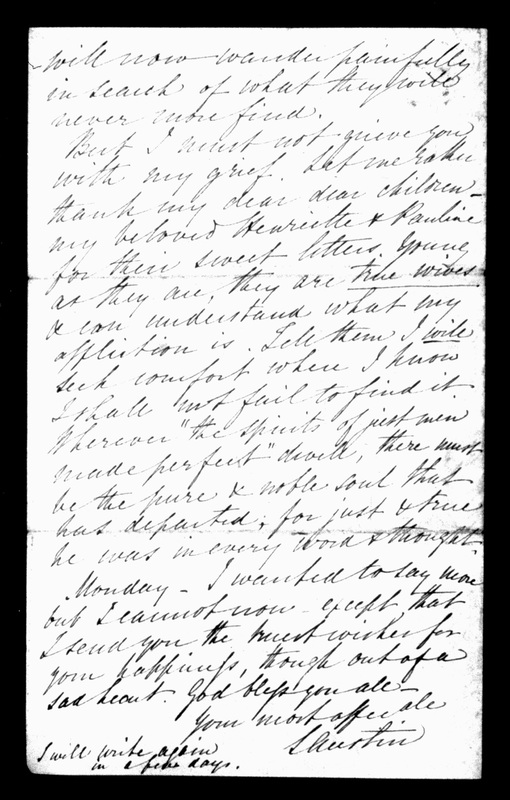 will now wander painfully
in search of what they will
never more find.
But I must not grieve you
with my grief. Let me rather
thank my dear dear children –
my beloved Henriette & Pauline
for their sweet letters. Young
as they are, they are true wives
& can understand what my
affliction is. Tell them I will
seek comfort where I know
I shall not fail to find it.
Wherever "the spirits of just men
made perfect" dwell, there must
be the pure & noble soul that
has departed; for just & true
he was in every word & thought.
Monday – I wanted to say more
but I cannot now – except, that
I send you the truest wishes for
your happiness, though out of a
sad heart. God bless you all –
Your most affec ate
SAustin
I will write again
in a few days.